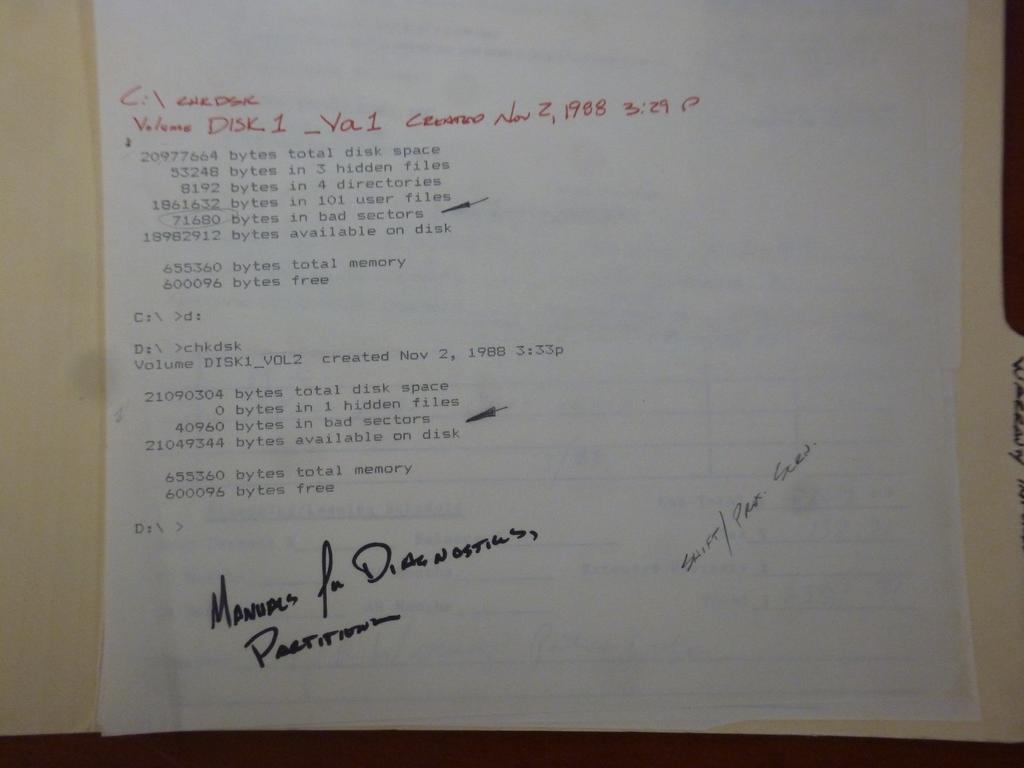 C:\ CHKDSK
Volume DISK 1 _Vol 1 CREATED Nov 2, 1988 3:29 P
20977664 bytes total disk space
53248 bytes in 3 hidden files
8192 bytes in 4 directories
1861632 bytes in 101 user files
71680 bytes in bad sectors
18982912 bytes available on disk
655360 bytes total memory
600096 bytes free
C:\ >d:
D:\ >chkdsk
Volume DISK1_VOL2 created Nov 2, 1988 3:33p
21090304 bytes total disk space
0 bytes in 1 hidden files
40960 bytes in bad sectors
21049344 bytes available on disk
655360 bytes total memory
600096 bytes free
D:\ >
SHIFT/Prt. Scrn.
MANUALS for DIAGNOSTICS,
PARTITION